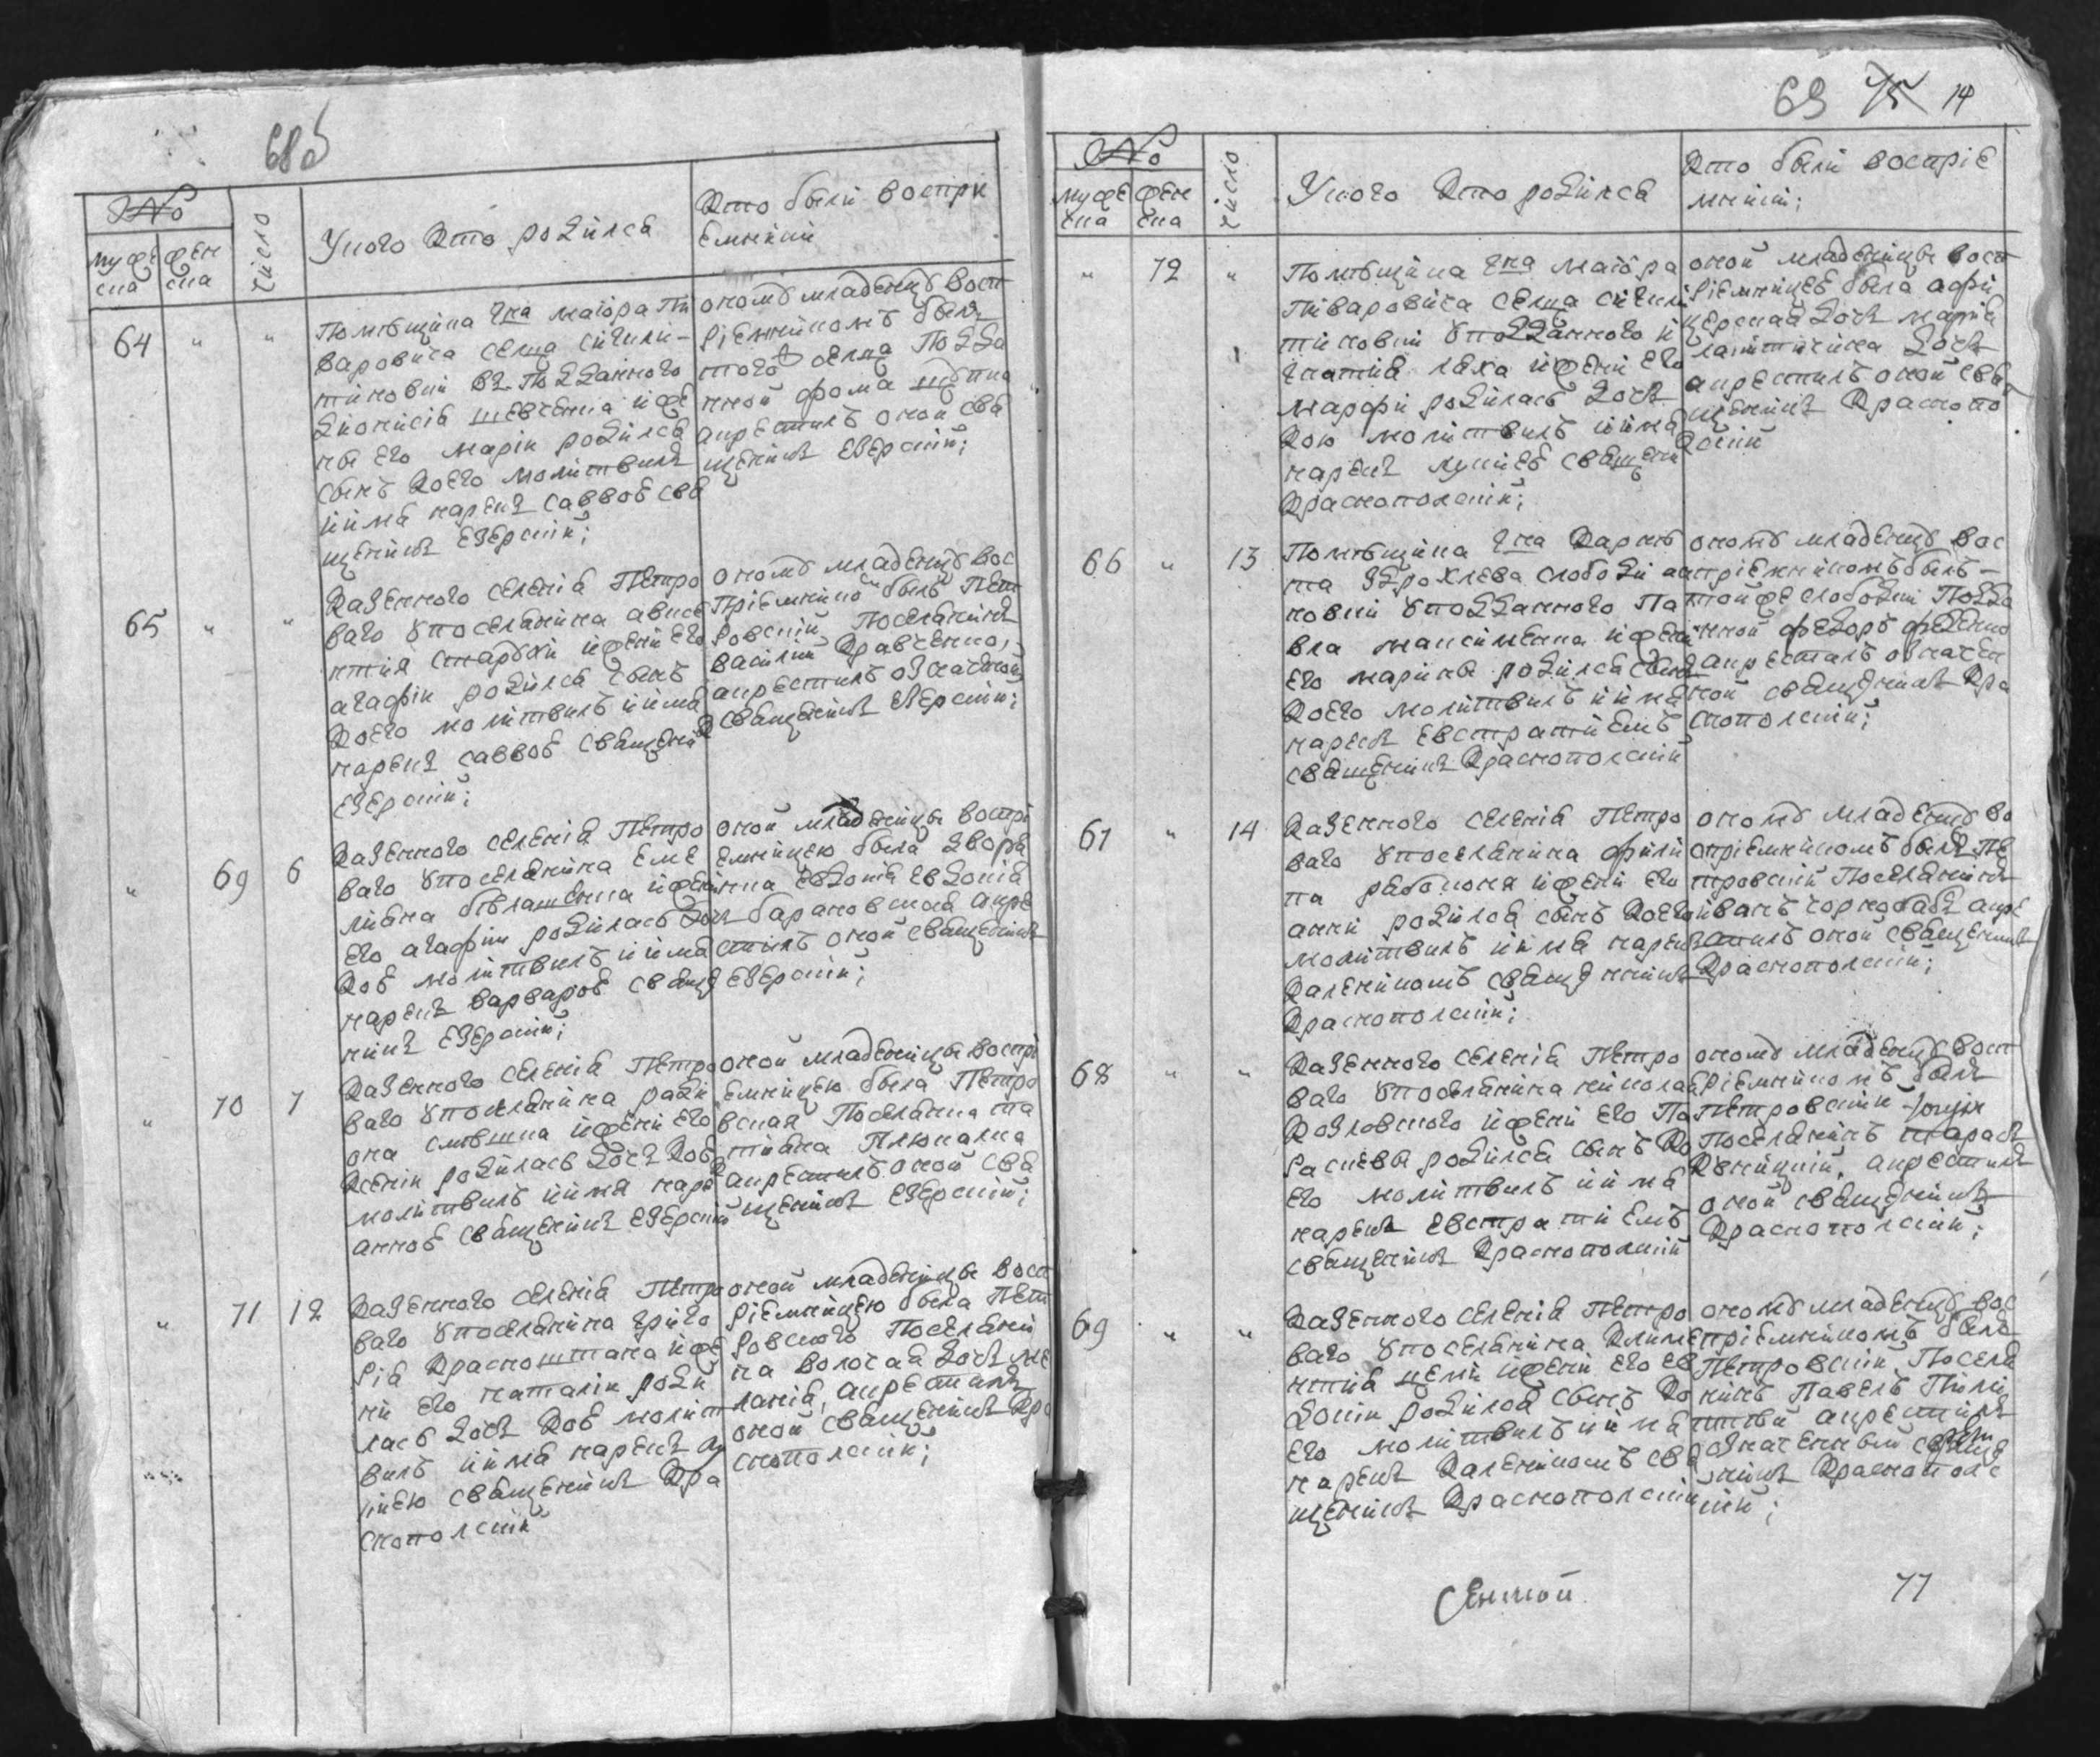 68об
№
муже
ска
жен
ска
число
Укого кто родился
Кто были воспри
емники
64 " "
Помѣщика Гна маіора Пи
варовича селца сичили-
тиновки въ подданного
Дионисія шевченка и же
ны его маріи родился
сынъ коего молитвилъ
и имя нарекъ саввоя свя
щенникъ Езерскій;
ономъ младенцу восп
ріемникомъ былъ
того селца подда
нной фома
а крестилъ оной свя
щенникъ Езерскій;
65 " "
Казенного селенія Петро
ваго у поселянина авксе
нтия и жени его
агафіи родился сынъ
коего молитвилъ и имя
нарекъ саввоя священник
Езерскій;
ономъ младенцу вос
пріемнико былъ Пет
ровскій поселянинъ
василий Кравченко,
а крестилъ означеной
священникъ Езерскій;
" 69 6
Казенного селенія Петро
ваго у поселянина Еме
ляна и жени
его агафии родилась дочь
коя молитвилъ и имя
нарекъ варварою священ
никъ Езерскій;
оной младеницѣ воспрі
емницею была дворя
нка евдокія евдокія
барановская а кре
стилъ оной священникъ
Езерскій;
" 70 7
Казенного селенія Петро
ваго у поселянина роди
она и жени его
Ксеніи родилась дочь коя
молитвилъ и имя нарек
анноя священникъ Езерскій
оной младеницѣ воспрі
емницею была Петро
вская поселянка та
тіяна
а крестилъ оной свя
щенникъ Езерскій;
" 71 12
Казенного селенія Петро
ваго у поселянина григо
рія Красноштана и же
ни его наталіи роди
лась дочь коя молит
вилъ и имя нарекъ
священникъ Кра
снополскій
оной младеницѣ восп
ріемницею была Пет
ровского поселяни
на дочь ме
ланія, а крестилъ
оной священникъ Кра
снополскій;
69 75 14
№
муже
ска
жен
ска
число
Укого кто родился
Кто были воспріе
мники;
" 72 "
Помѣщика Гна маіора
Пиваровича селца сичили
тиновки у подданного и
гнатія ляха и жени его
марфи родилась дочь
кою молитвилъ и имя
нарекъ священни
Краснополскій;
оной младеницѣ восп
ріемницея была офи
церская дочь марія
дочь
а крестилъ оной свя
щенникъ Краснопо
лскій
66 " 13
Помѣщика Гна
слободи
новки у подданного Па
вла максименка и жени
его марини родился синъ
коего молитвилъ и имя
нарекъ евстратиемъ
священникъ Краснополскій
ономъ младенцу вос
пріемникомъ былъ-
той же слободки подда
нной феодоръ
а крестилъ означен
ной священникъ Кра
снополскій;
67 " 14
Казенного селенія Петро
ваго у поселянина фили
па рябоконя и жени его
анни родился синъ коего
молитвилъ и имя нарекъ
Калеником священникъ
Краснополскій;
ономъ младенцу во
спріемникомъ былъ Пе
тровскій поселянинъ
иванъ чорнобабъ а кре
стилъ оной священникъ
Краснополскій;
68 " "
Казенного селенія Петро
ваго у поселянина никола
Козловского и жени его Па
раскевы родился синъ ко
его молитвилъ и имя
нарекъ евстратиемъ
священникъ Краснополскій
ономъ младенцу восп
ріемникомъ былъ
Петровскій
поселянинъ тарасъ
а крестилъ
оной священникъ
Краснополскій;
69 " "
Казенного селенія Петро
ваго у поселянина Климе
нтия и жени его ев
докіи родился синъ ко
его молитвилъ и имя
нарекъ Калеником свя
щенникъ Краснополскій
ономъ младенцу вос
пріемникомъ былъ
Петровскій поселя
нинъ Павелъ
а крестилъ
означенный священ
никъ Краснополс
кій;
77